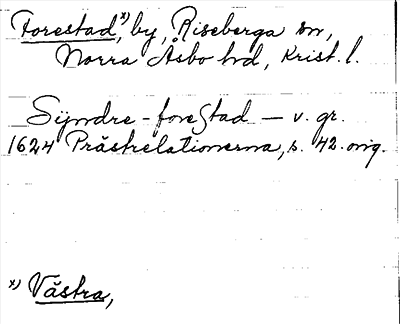 Forestad,ˣ⁾ by, Riseberga sn,
Norra Åsbo hd, Krist. l.
Sÿndre-forestad — v. gr.
1624 Prästrelationerna, s. 42. orig.
ˣ⁾ Västra,